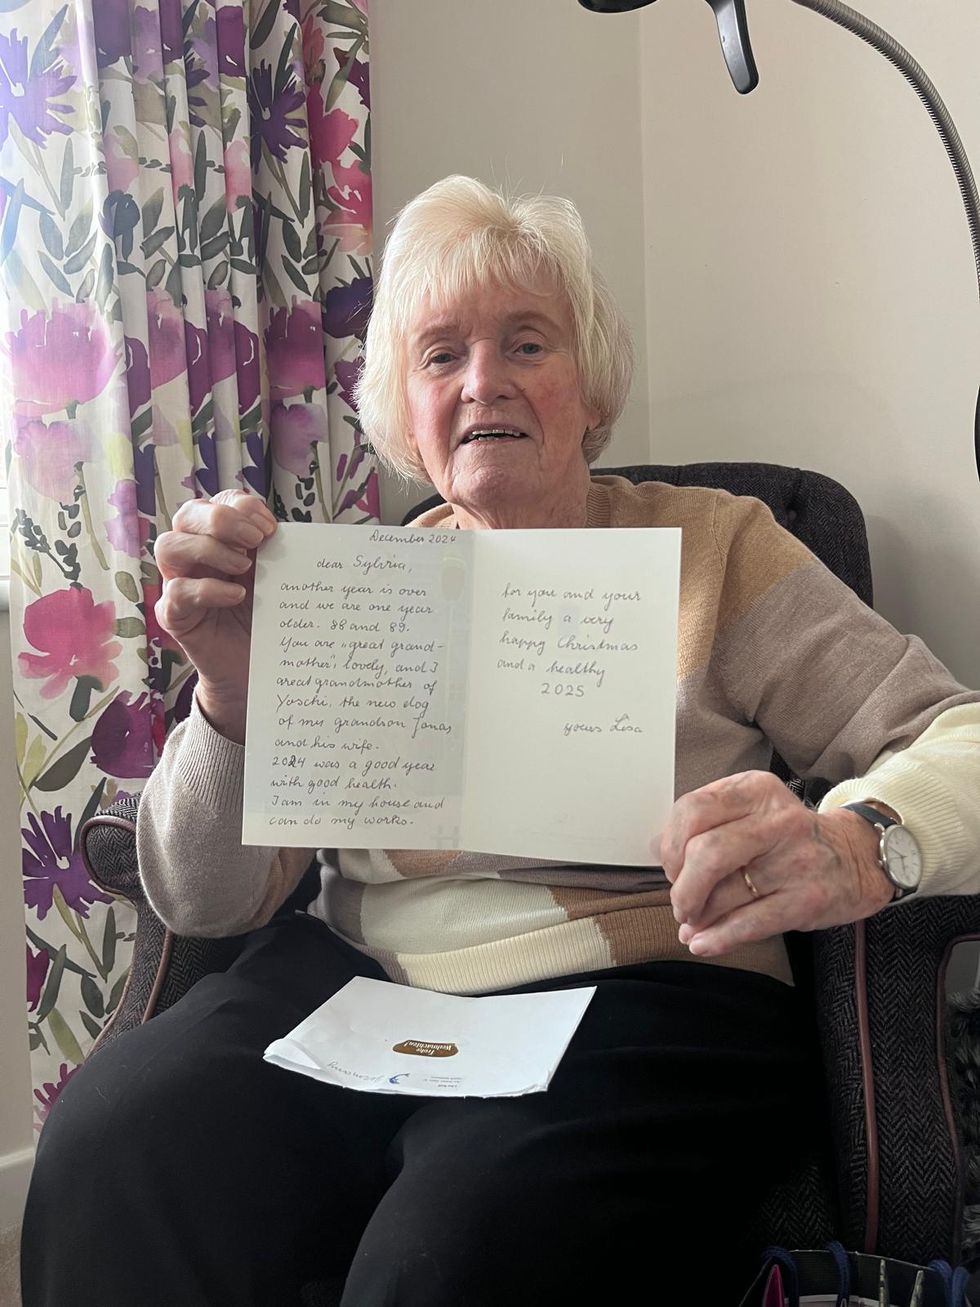 December 2024
dear Sylvia,
another year is over
and we are one year
older. 88 and 89.
You are „great grand-
mother“, lovely, and I
great grandmother of
Yoschi, the new dog
of my grandson Jonas
and his wife.
2024 was a good year
with good health.
I am in my house and
can do my works.
for you and your
family a very
happy Christmas
and a healthy
2025
yours Lisa
Frohe
Weihnachten!
Germany